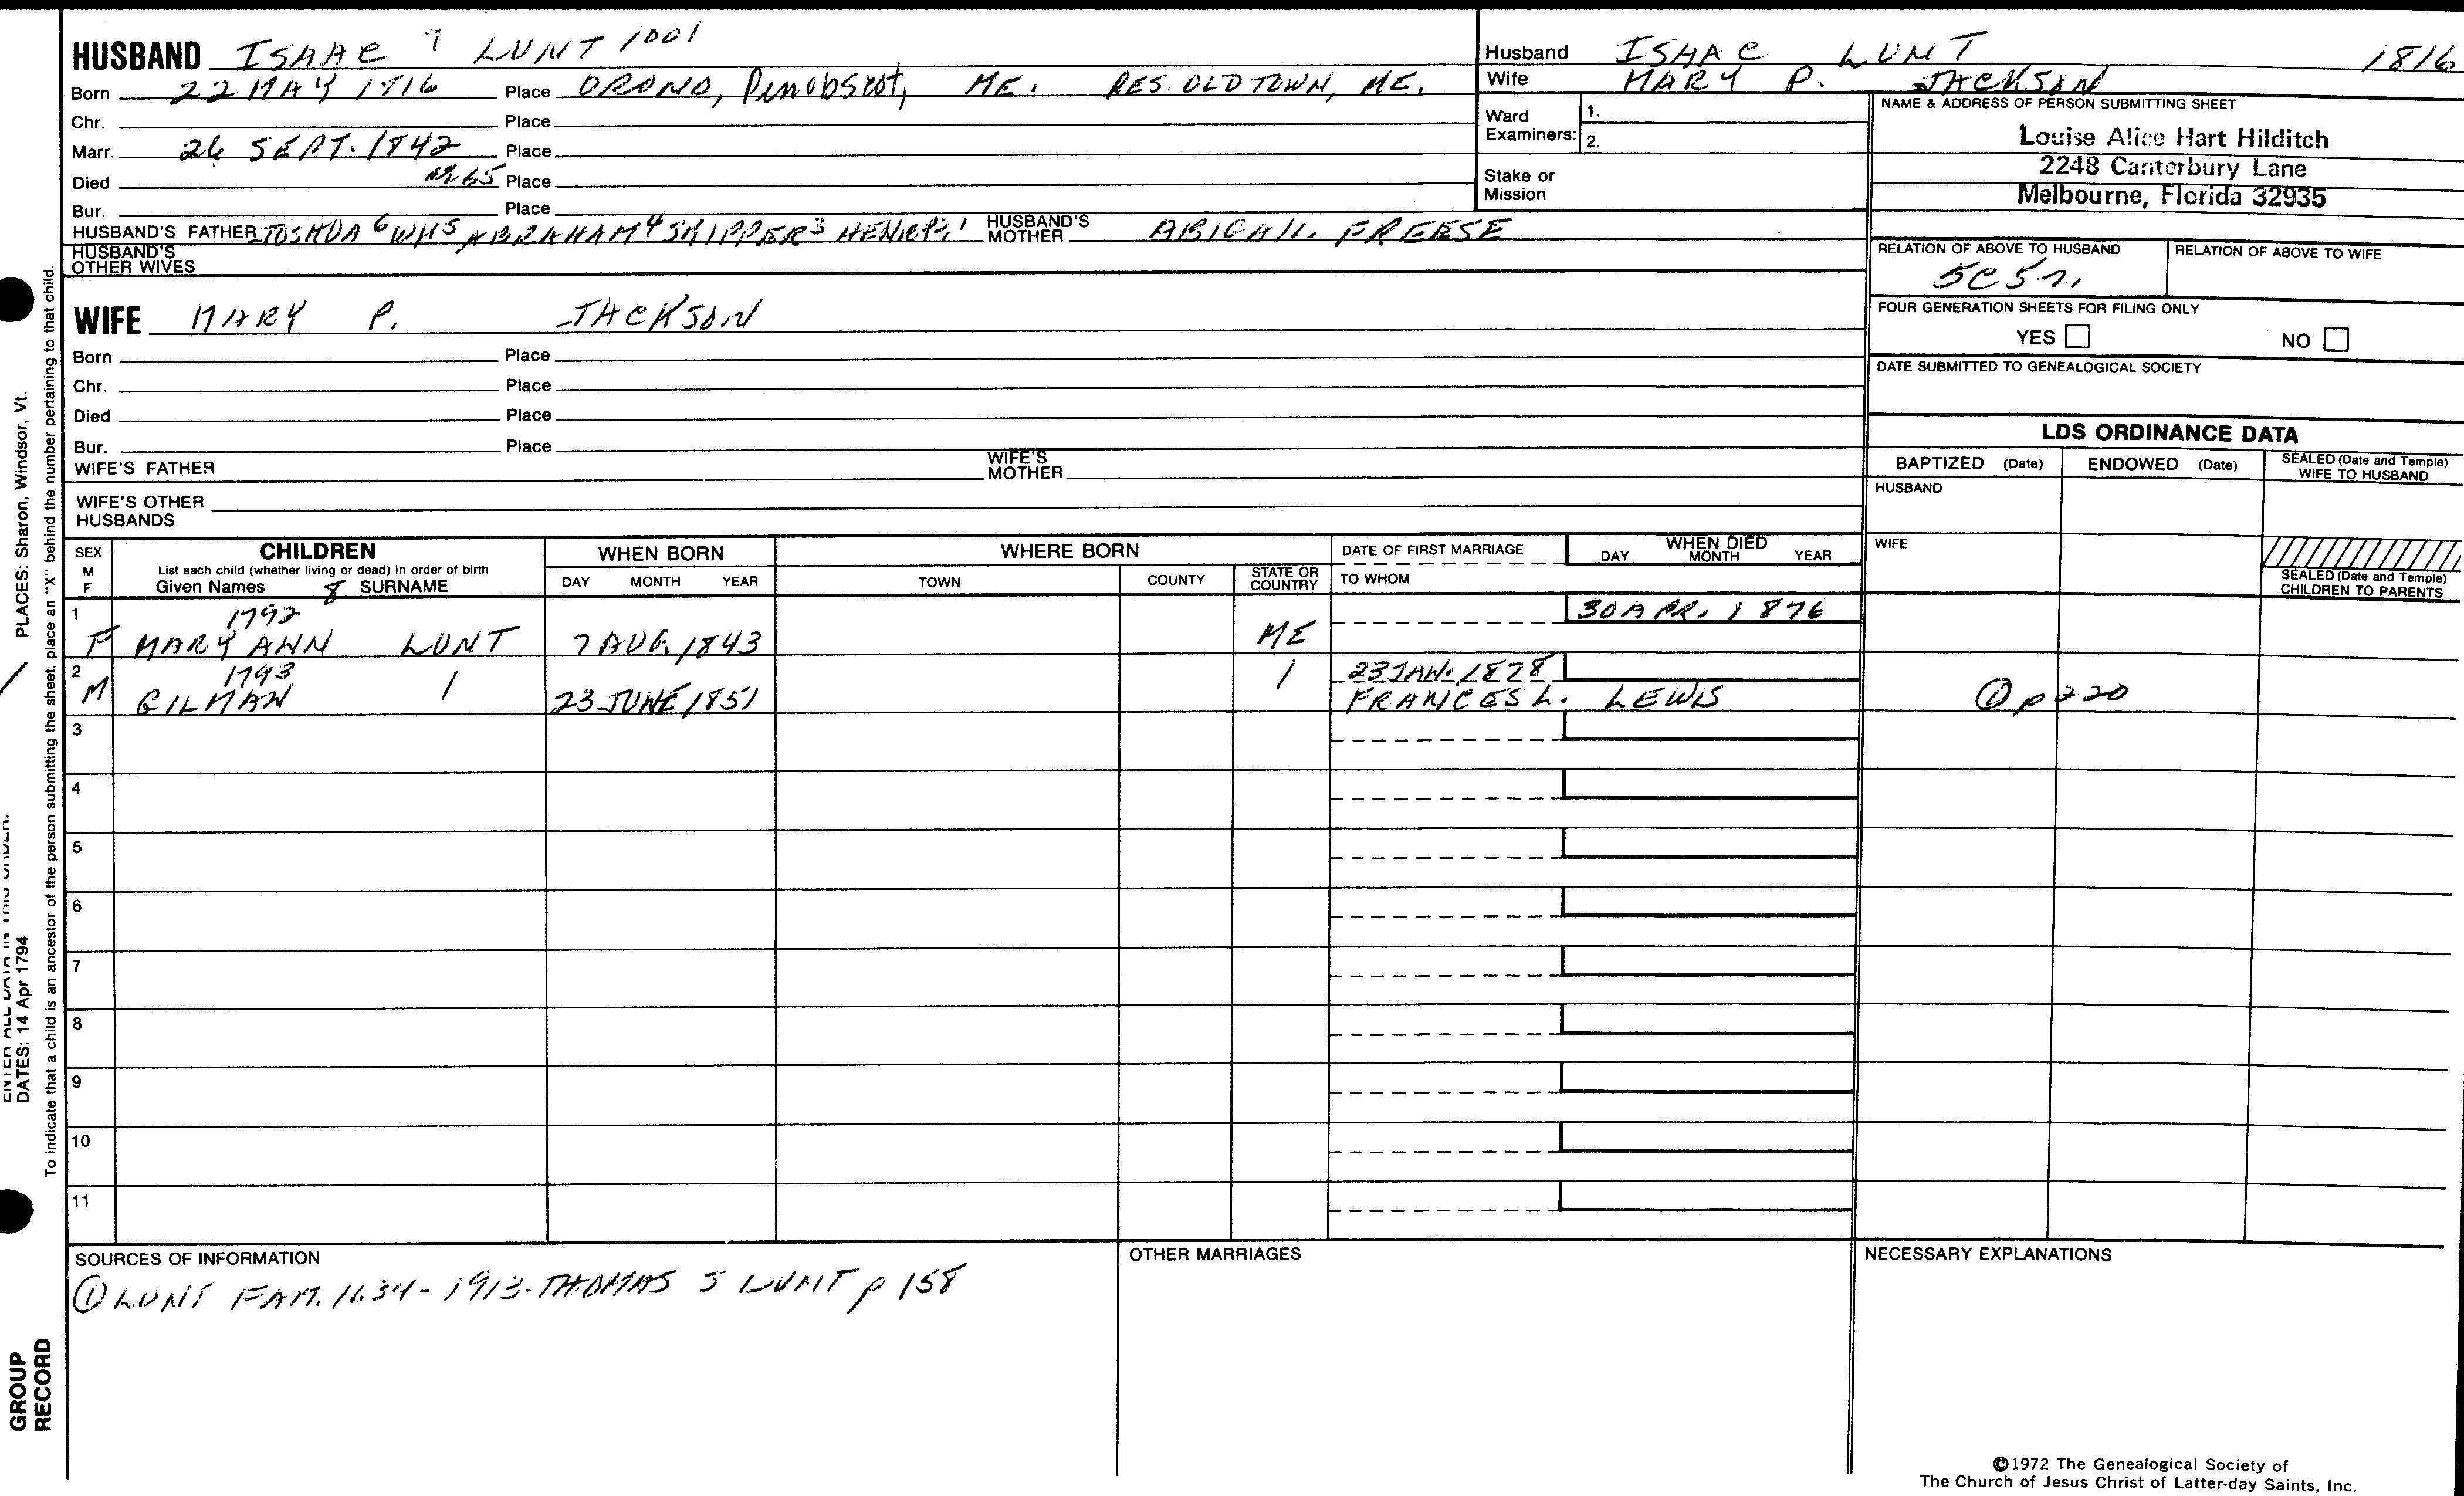 HUSBAND ISAAC 7 LUNT 1001
Born 22 MAY 1816 Place ORONO, Penobscot, ME. RES. OLD TOWN, ME.
Chr. Place
Marr. 26 SEPT. 1842 Place
Died 65 Place
Bur. Place
HUSBAND'S FATHER JOSHUA 6 WM 5 ABRAHAM 4 SKIPPER 3 HENRY 1 HUSBAND'S MOTHER ABIGAIL FREESE
HUSBAND'S OTHER WIVES
WIFE MARY P. JACKSON
Born Place
Chr. Place
Died Place
Bur. Place
WIFE'S FATHER WIFE'S MOTHER
WIFE'S OTHER HUSBANDS
Husband ISAAC LUNT 1816
Wife MARY P. JACKSON
Ward Examiners: 1.
2.
Stake or Mission
NAME & ADDRESS OF PERSON SUBMITTING SHEET
Louise Alice Hart Hilditch
2248 Canterbury Lane
Melbourne, Florida 32935
RELATION OF ABOVE TO HUSBAND RELATION OF ABOVE TO WIFE
5C5r.
FOUR GENERATION SHEETS FOR FILING ONLY
YES NO
DATE SUBMITTED TO GENEALOGICAL SOCIETY
LDS ORDINANCE DATA
BAPTIZED (Date) ENDOWED (Date) SEALED (Date and Temple) WIFE TO HUSBAND
HUSBAND
WIFE
SEALED (Date and Temple) CHILDREN TO PARENTS
SEX M F CHILDREN WHEN BORN WHERE BORN DATE OF FIRST MARRIAGE WHEN DIED
List each child (whether living or dead) in order of birth
Given Names 8 SURNAME DAY MONTH YEAR TOWN COUNTY STATE OR COUNTRY TO WHOM DAY MONTH YEAR
1 1792 30 APR. 1876
F MARY ANN LUNT 7 AUG. 1843 ME
2 1793 23 JAN. 1878
M GILMAN 23 JUNE 1851 FRANCES L. LEWIS ① p 220
3
4
5
6
7
8
9
10
11
SOURCES OF INFORMATION OTHER MARRIAGES NECESSARY EXPLANATIONS
① LUNT FAM. 1634-1913-THOMAS S LUNT p 158
©1972 The Genealogical Society of
The Church of Jesus Christ of Latter-day Saints, Inc.
PLACES: Sharon, Windsor, Vt.
ENTER ALL DATA IN THIS ORDER:
DATES: 14 Apr 1794
To indicate that a child is an ancestor of the person submitting the sheet, place an "X" behind the number pertaining to that child.
GROUP
RECORD